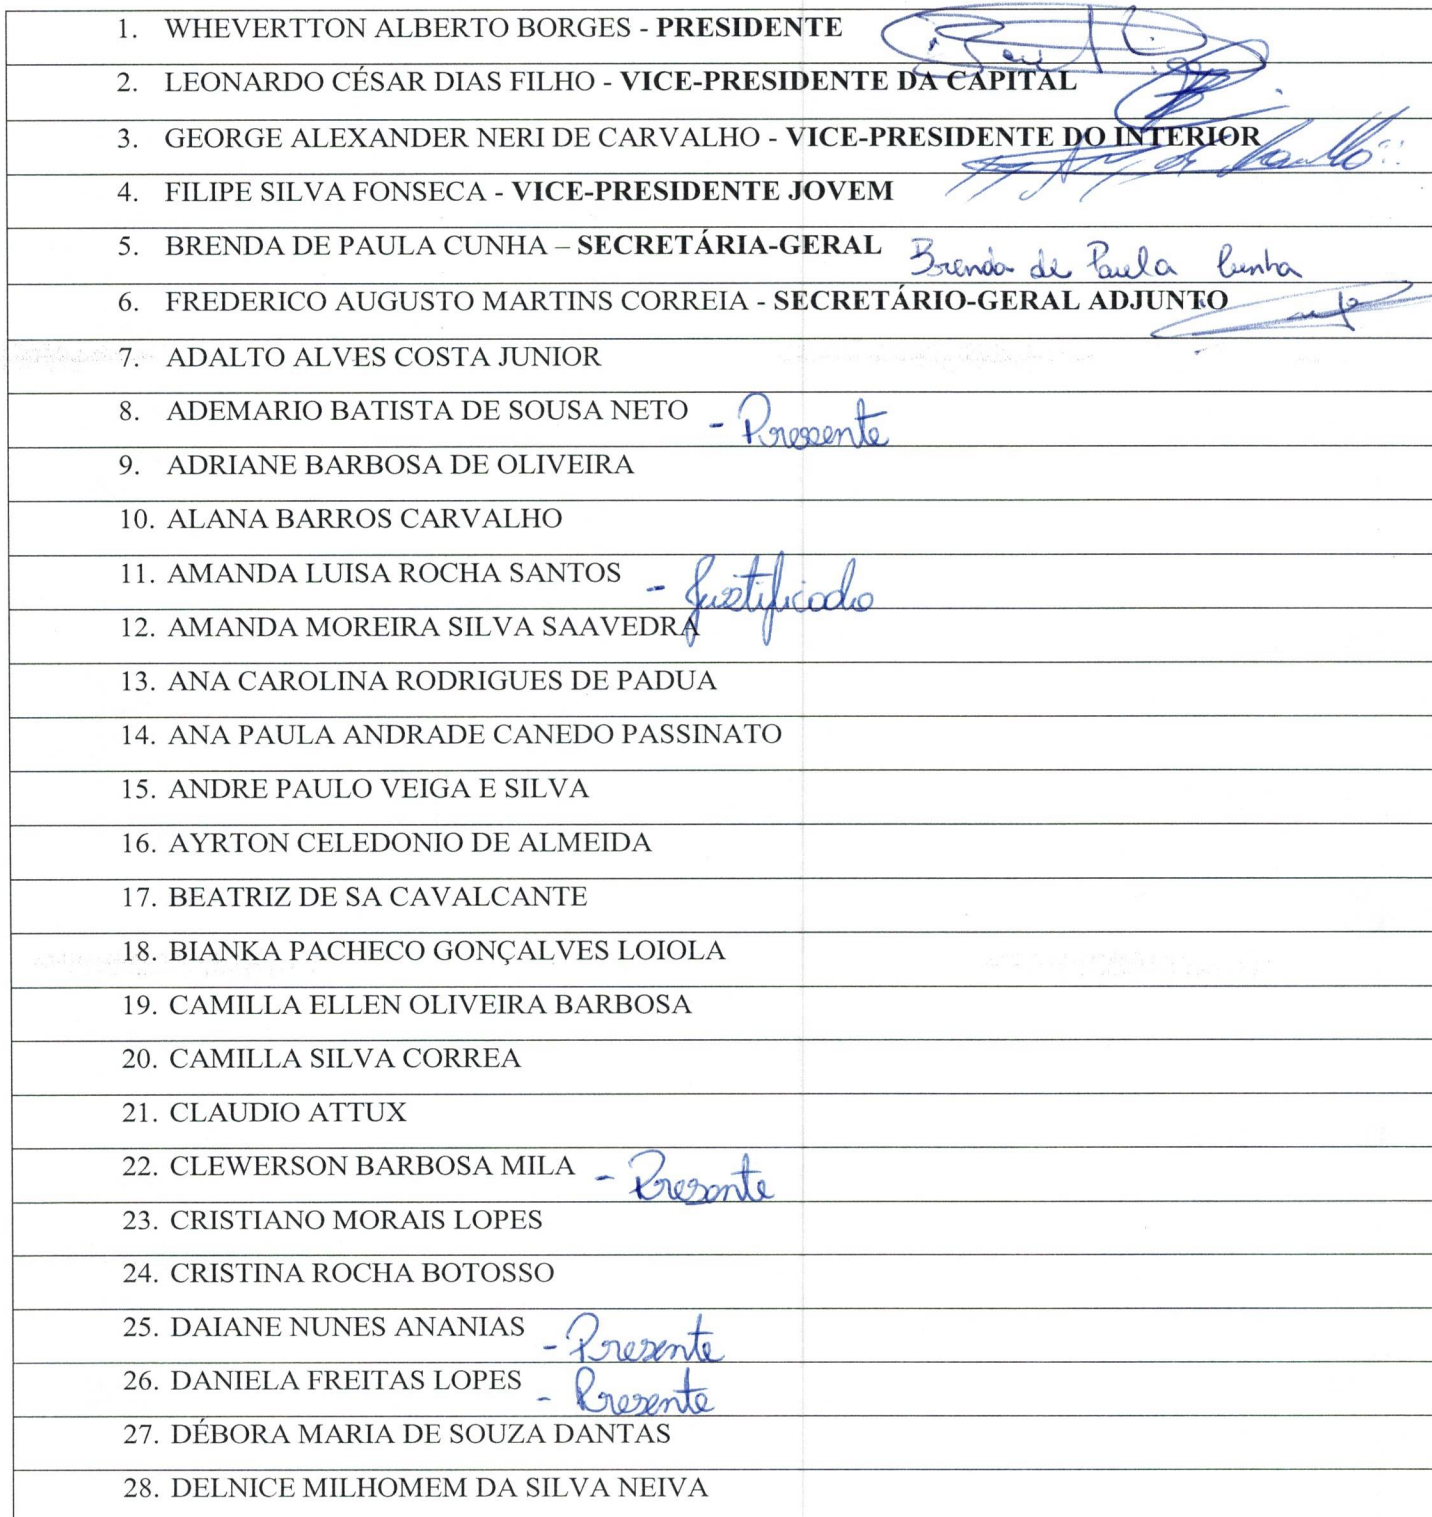 1. WHEVERTTON ALBERTO BORGES - PRESIDENTE
2. LEONARDO CÉSAR DIAS FILHO - VICE-PRESIDENTE DA CAPITAL
3. GEORGE ALEXANDER NERI DE CARVALHO - VICE-PRESIDENTE DO INTERIOR
4. FILIPE SILVA FONSECA - VICE-PRESIDENTE JOVEM
5. BRENDA DE PAULA CUNHA – SECRETÁRIA-GERAL Brenda de Paula Cunha
6. FREDERICO AUGUSTO MARTINS CORREIA - SECRETÁRIO-GERAL ADJUNTO
7. ADALTO ALVES COSTA JUNIOR
8. ADEMARIO BATISTA DE SOUSA NETO - Presente
9. ADRIANE BARBOSA DE OLIVEIRA
10. ALANA BARROS CARVALHO
11. AMANDA LUISA ROCHA SANTOS - Justificado
12. AMANDA MOREIRA SILVA SAAVEDRA
13. ANA CAROLINA RODRIGUES DE PADUA
14. ANA PAULA ANDRADE CANEDO PASSINATO
15. ANDRE PAULO VEIGA E SILVA
16. AYRTON CELEDONIO DE ALMEIDA
17. BEATRIZ DE SA CAVALCANTE
18. BIANKA PACHECO GONÇALVES LOIOLA
19. CAMILLA ELLEN OLIVEIRA BARBOSA
20. CAMILLA SILVA CORREA
21. CLAUDIO ATTUX
22. CLEWERSON BARBOSA MILA - Presente
23. CRISTIANO MORAIS LOPES
24. CRISTINA ROCHA BOTOSSO
25. DAIANE NUNES ANANIAS - Presente
26. DANIELA FREITAS LOPES - Presente
27. DÉBORA MARIA DE SOUZA DANTAS
28. DELNICE MILHOMEM DA SILVA NEIVA